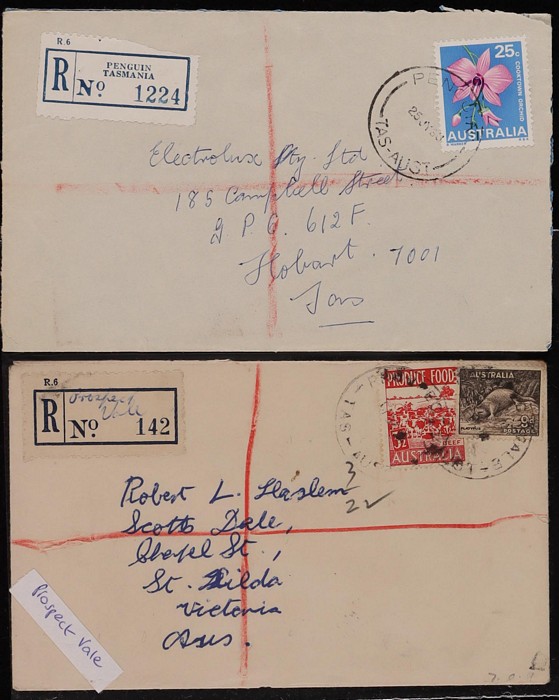 R.6
R No
PENGUIN
TASMANIA
1224
25c
COOKTOWN ORCHID
AUSTRALIA
TAS-AUST
Electrolux Pty. Ltd
185 Campbell Street
G P O. 612 F.
Hobart. 7001
Tas
R.6
R No
Prospect
Vale
142
PRODUCE FOOD
BEEF
AUSTRALIA
AUSTRALIA
PLATYPUS
POSTAGE
Robert L. Haslem
Scotts Dale,
Chapel St.,
St. Kilda
Victoria
Aus.
22
Prospect Vale